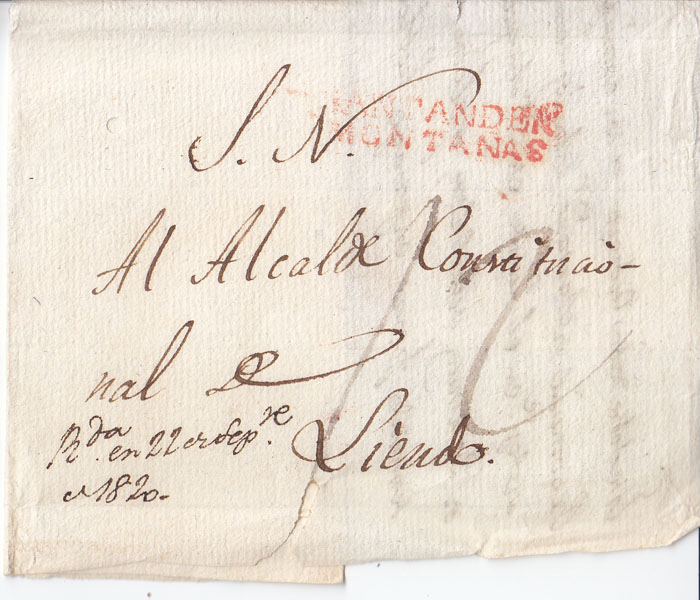 SANTANDER
MONTAÑAS
S. N.
Al Alcalde Constitucio-
nal de
Liendo.
Rda en 22 de Sepre
de 1820.